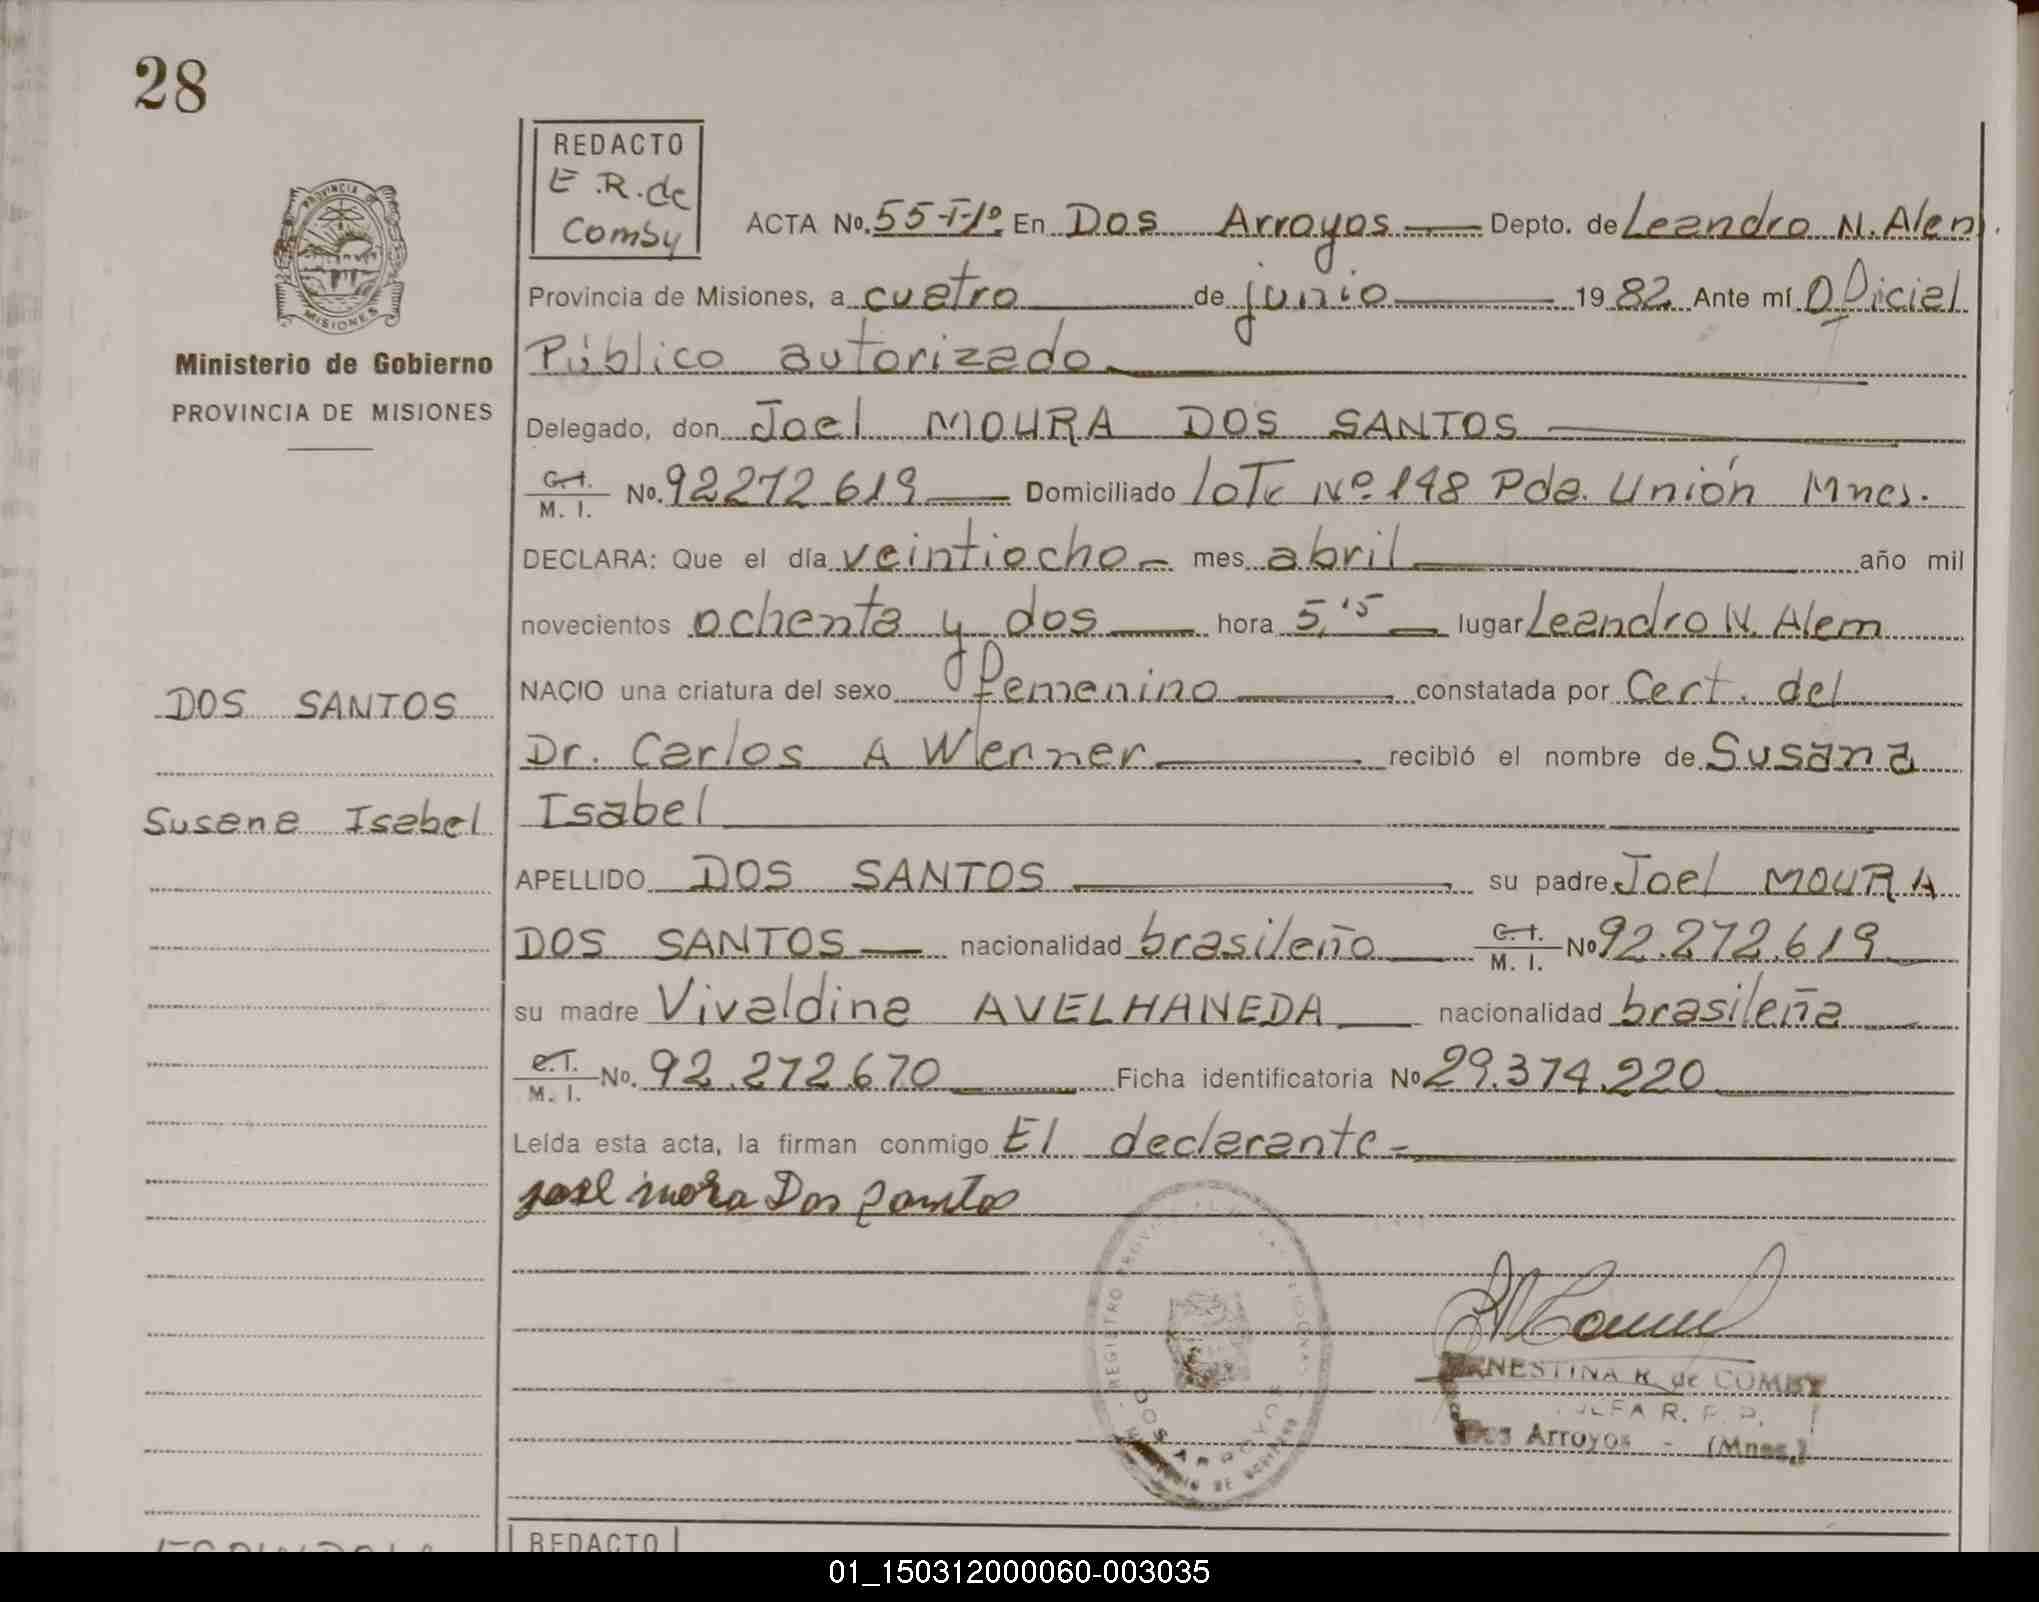 28
PROVINCIA DE
MISIONES
Ministerio de Gobierno
PROVINCIA DE MISIONES
DOS SANTOS
Susana Isabel
REDACTO
E.R. de
Comby
ACTA No. 55-Tº1º En Dos Arroyos Depto. de Leandro N. Alem
Provincia de Misiones, a cuatro de junio 1982 Ante mí Oficial
Público autorizado
Delegado, don Joel MOURA DOS SANTOS
C.I. M. I. No. 92272619 Domiciliado lote Nº 148 Pda. Unión Mnes.
DECLARA: Que el día veintiocho mes abril año mil
novecientos ochenta y dos hora 5,15 lugar Leandro N. Alem
NACIO una criatura del sexo femenino constatada por Cert. del
Dr. Carlos A Wenner recibió el nombre de Susana
Isabel
APELLIDO DOS SANTOS su padre Joel MOURA
DOS SANTOS nacionalidad brasileño C.I. M. I. Nº 92.272.619
su madre Vivaldina AVELHANEDA nacionalidad brasileña
C.I. M. I. No. 92.272.670 Ficha identificatoria Nº 29.374.220
Leída esta acta, la firman conmigo El declarante
Joel mora Dos Santos
REGISTRO PROVINCIAL DE LAS PERSONAS
DOS ARROYOS
ERNESTINA R. de COMBY
JEFA R. P. P.
Dos Arroyos - (Mnes.)
REDACTO
01_150312000060-003035